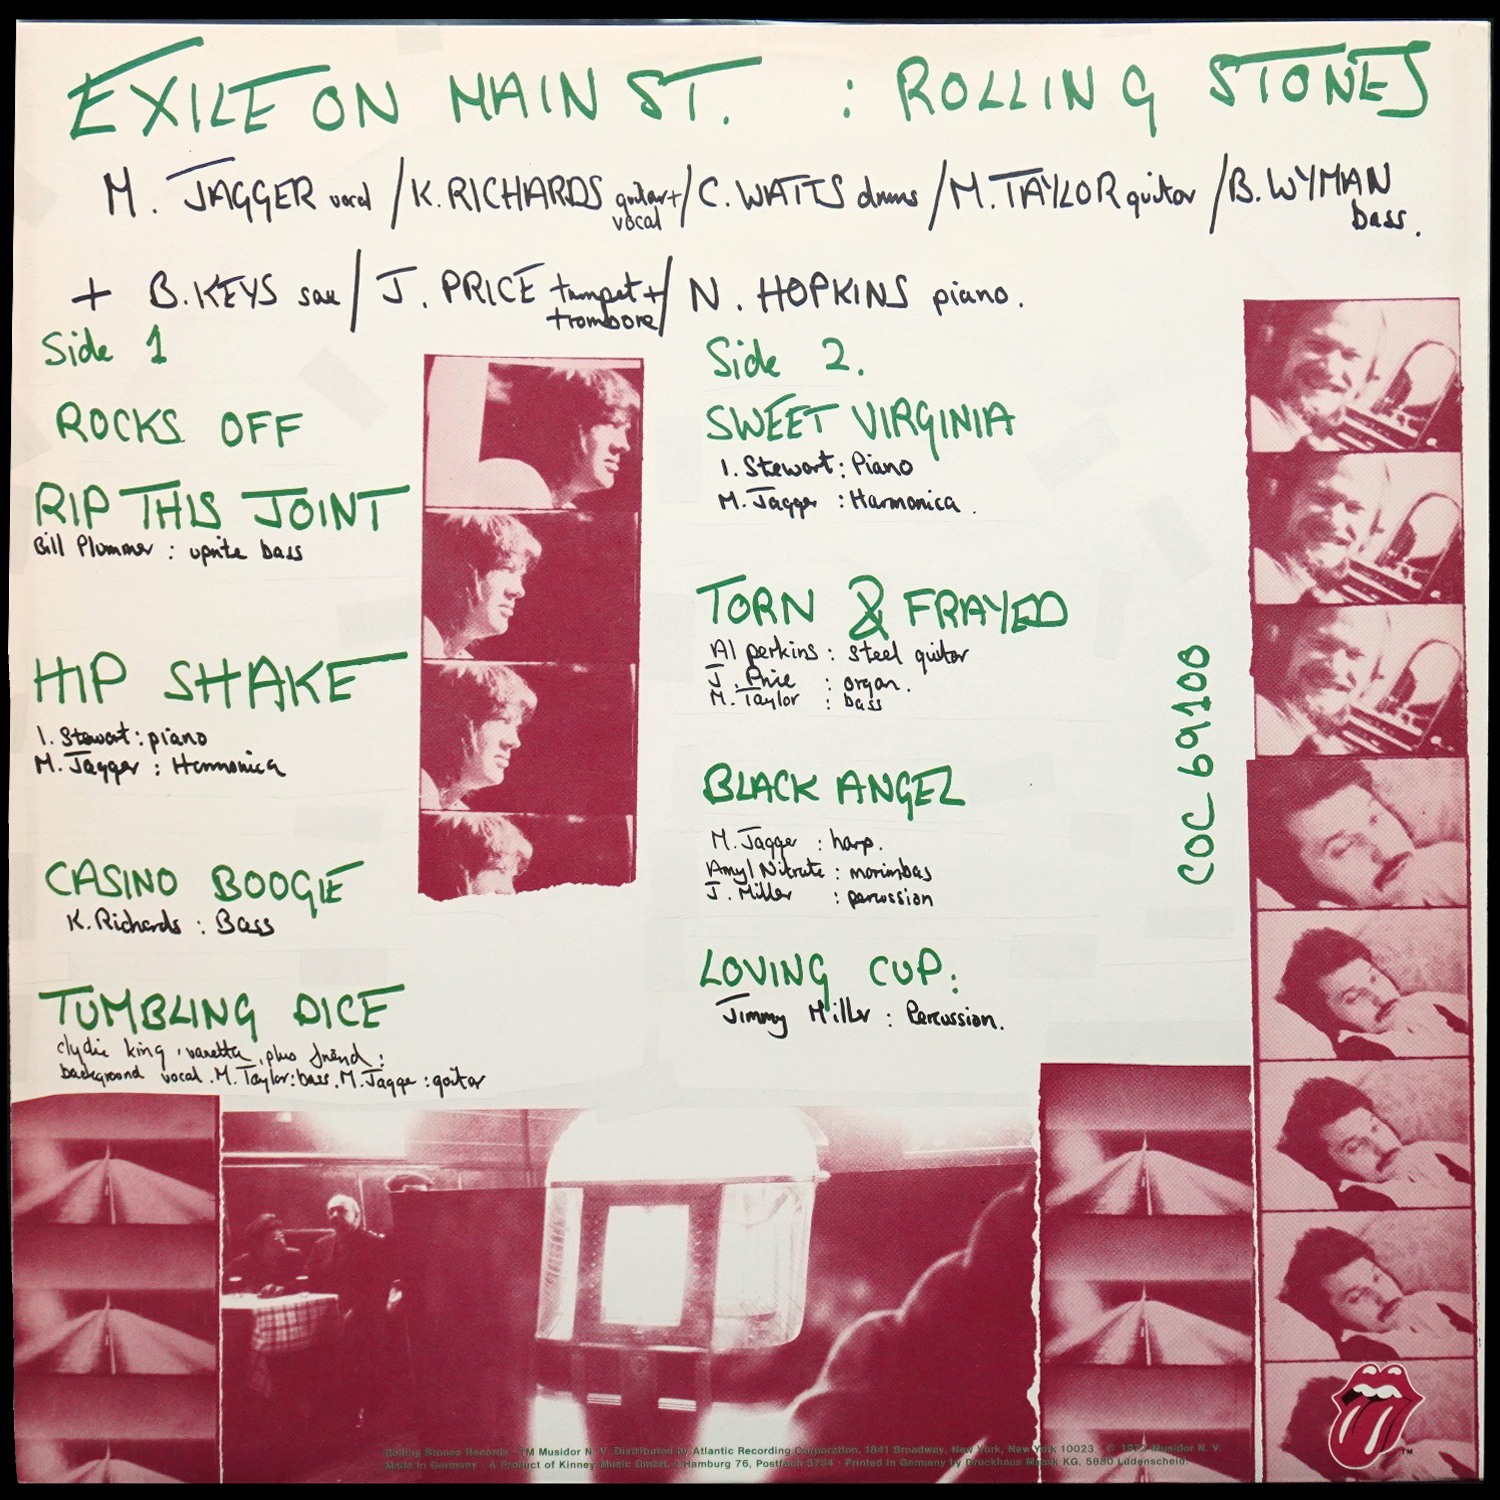 EXILE ON MAIN ST. : ROLLING STONES
M. JAGGER vocal / K. RICHARDS guitar + vocal / C. WATTS drums / M. TAYLOR guitar / B. WYMAN bass.
+ B. KEYS sax / J. PRICE trumpet + trombone / N. HOPKINS piano.
Side 1
ROCKS OFF
RIP THIS JOINT
Bill Plummer : uprite bass
HIP SHAKE
I. Stewart : piano
M. Jagger : Harmonica
CASINO BOOGIE
K. Richards : Bass
TUMBLING DICE
clydie king, vanetta, plus friend :
background vocal. M. Taylor: bass. M. Jagger : guitar
Side 2.
SWEET VIRGINIA
I. Stewart : Piano
M. Jagger : Harmonica.
TORN & FRAYED
Al perkins : steel guitar
J. Price : organ.
M. Taylor : bass
BLACK ANGEL
M. Jagger : harp.
Amyl Nitrate : marimbas
J. Miller : percussion
LOVING CUP:
Jimmy Miller : Percussion.
COC 69100
Rolling Stones Records · TM Musidor N. V. Distributed by Atlantic Recording Corporation, 1841 Broadway, New York, New York 10023 · © 1972 Musidor N. V.
Made in Germany · A Product of Kinney Music GmbH, 2 Hamburg 76, Postfach 3754 · Printed in Germany by Druckhaus Maack KG, 5880 Lüdenscheid.
TM